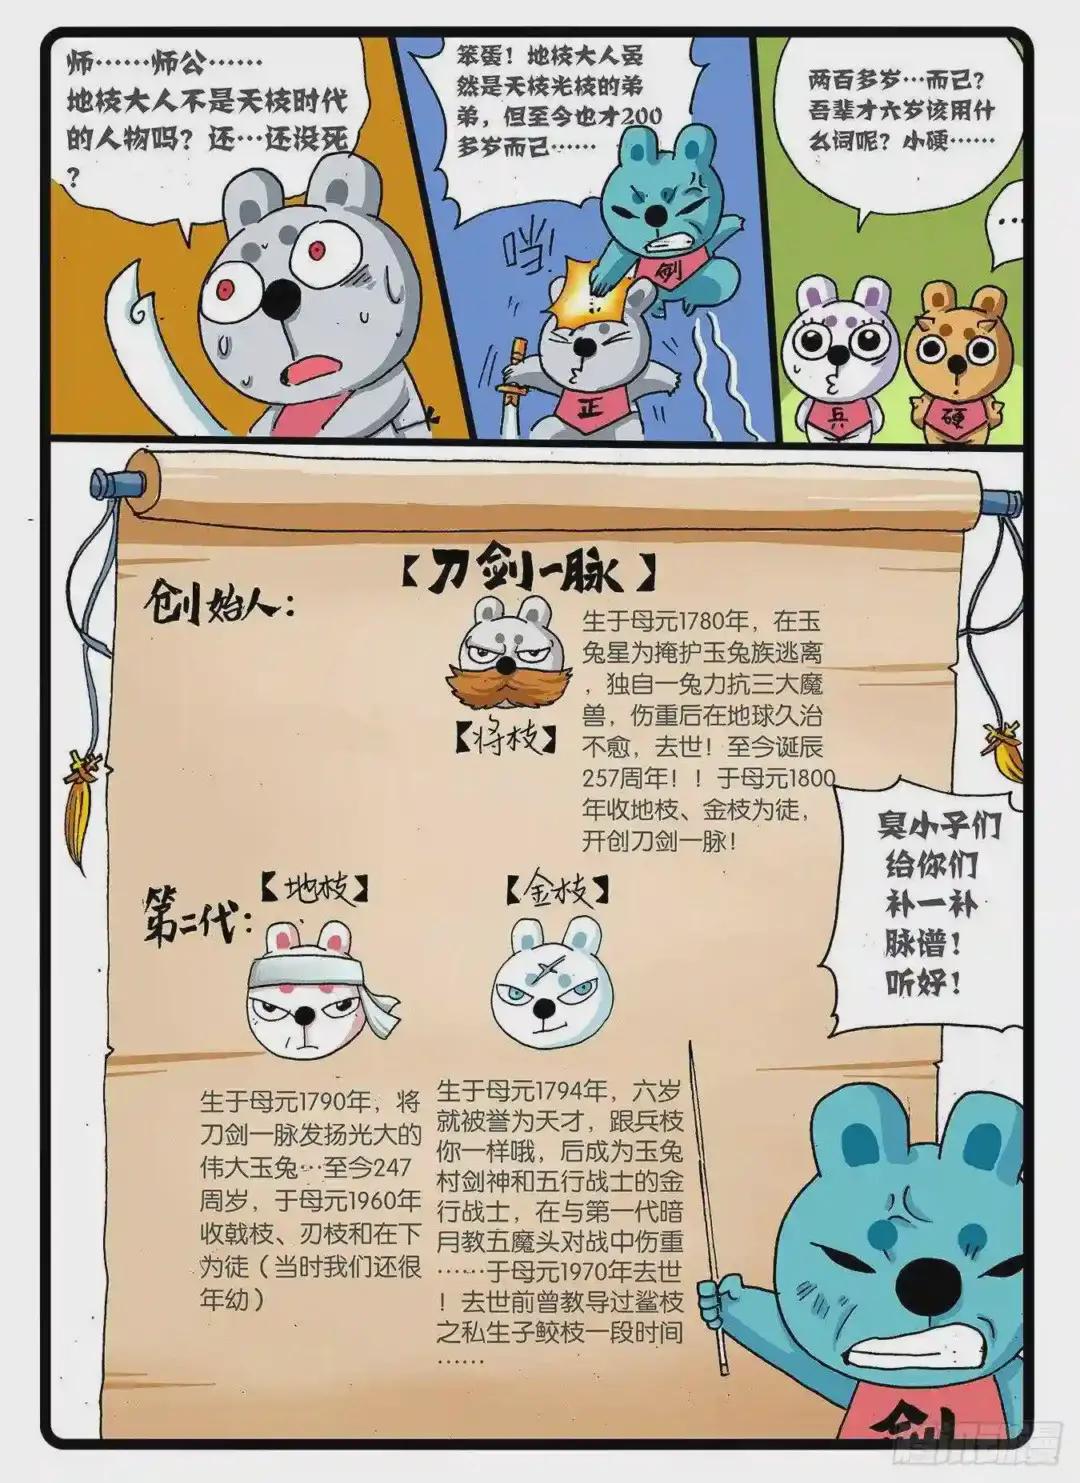 师……师公……
地枝大人不是天枝时代
的人物吗？还…还没死
？
笨蛋！地枝大人虽
然是天枝光枝的弟
弟，但至今也才200
多岁而己……
当！
剑
正
两百多岁…而己？
吾辈才六岁该用什
么词呢？小硬……
…
兵
硬
【刀剑一脉】
创始人：
【将枝】
生于母元1780年，在玉
兔星为掩护玉兔族逃离
，独自一兔力抗三大魔
兽，伤重后在地球久治
不愈，去世！至今诞辰
257周年！！于母元1800
年收地枝、金枝为徒，
开创刀剑一脉！
臭小子们
给你们
补一补
脉谱！
听好！
第二代：
【地枝】
【金枝】
生于母元1790年，将
刀剑一脉发扬光大的
伟大玉兔…至今247
周岁，于母元1960年
收戟枝、刃枝和在下
为徒（当时我们还很
年幼）
生于母元1794年，六岁
就被誉为天才，跟兵枝
你一样哦，后成为玉兔
村剑神和五行战士的金
行战士，在与第一代暗
月教五魔头对战中伤重
……于母元1970年去世
！去世前曾教导过鲨枝
之私生子鲛枝一段时间
……
剑